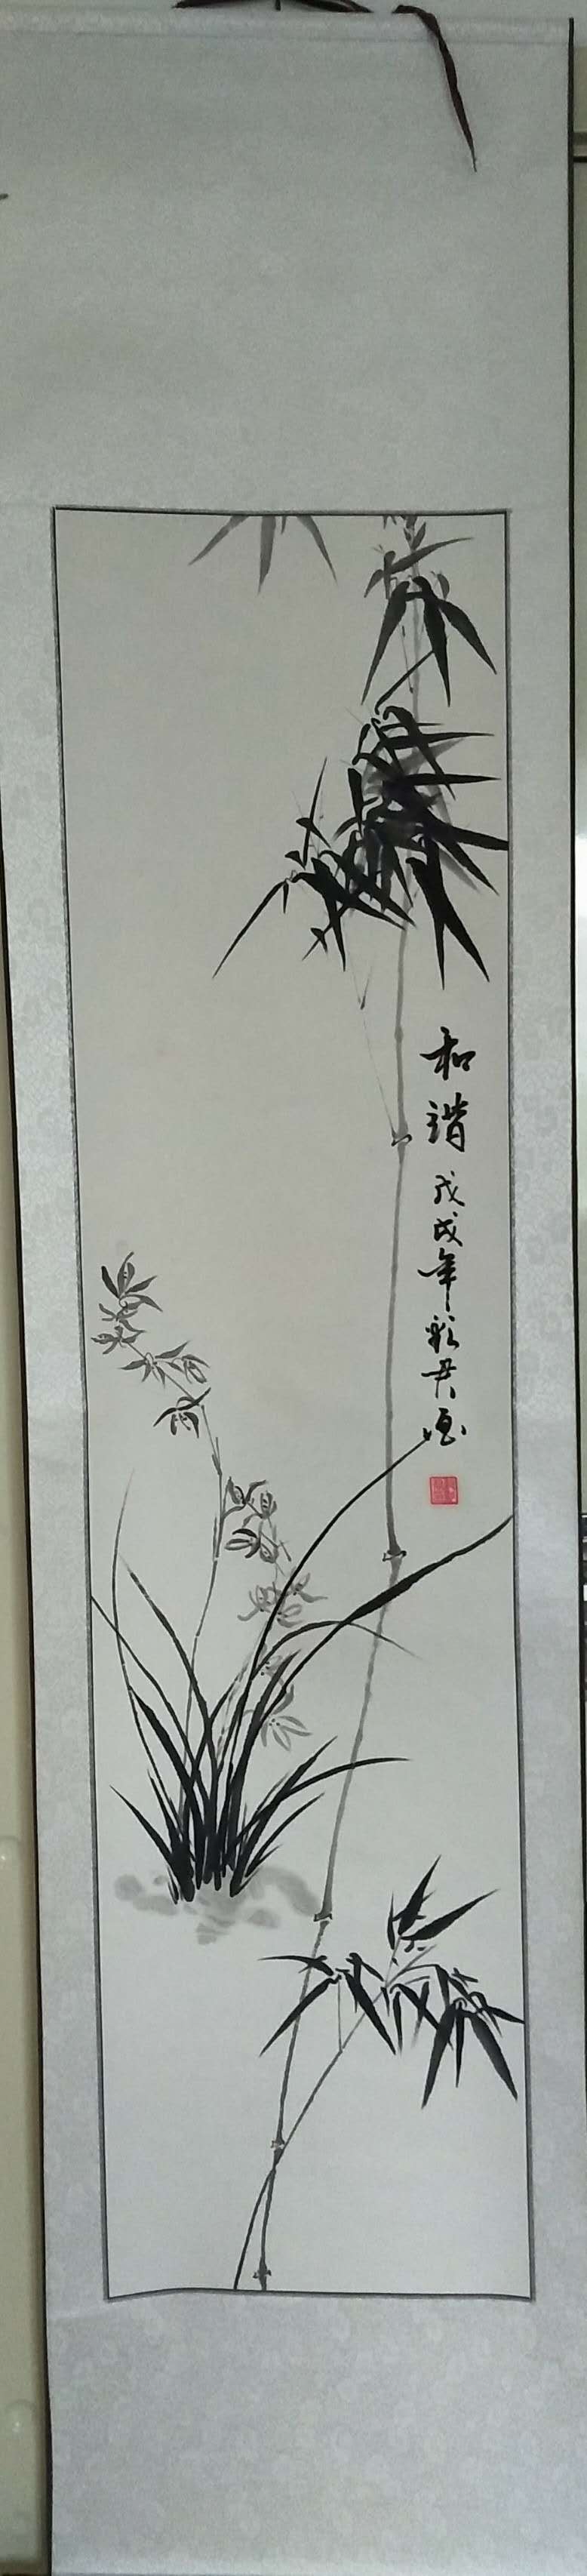 和谐戊戌年彩君画